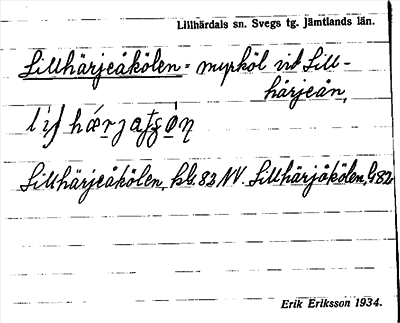 Lillhärdals sn. Svegs tg. Jämtlands län.
Lillhärjeåkölen = myrköl vid Lill-
härjeån,
Lillhärjeåkölen, kbl. 82 NV. Lillhärjåkölen, G82
Erik Eriksson 1934.